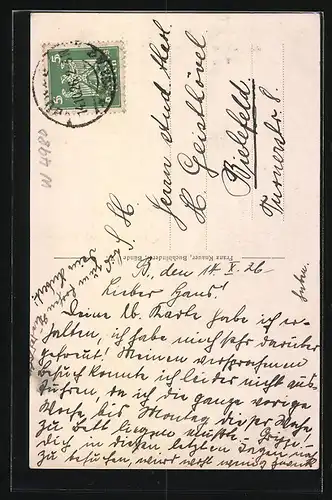 5 5
W 4980
Herrn stud. theol.
H. Geisthövel
Bielefeld.
Turnerstr 8.
S. H.
Franz Knauer, Buchbinderei, Bünde
B. den 14. X. 26
Lieber Hans!
Deine lb. Karte habe ich er-
halten, ich habe mich sehr darüber
gefreut! Meinen versprochenen
Besuch konnte ich leider nicht aus-
führen, da ich die ganze vorige
Woche bis Montag dieser Woche
zu Bett liegen mußte.
Dich in diesen letzten Tagen noch
zu besuchen, wird wohl wenig Zweck